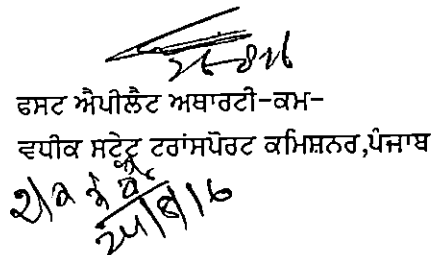 ਫਸਟ ਐਪੀਲੈਟ ਅਥਾਰਟੀ-ਕਮ-
ਵਧੀਕ ਸਟੇਟ ਟਰਾਂਸਪੋਰਟ ਕਮਿਸ਼ਨਰ,ਪੰਜਾਬ
24/8/16